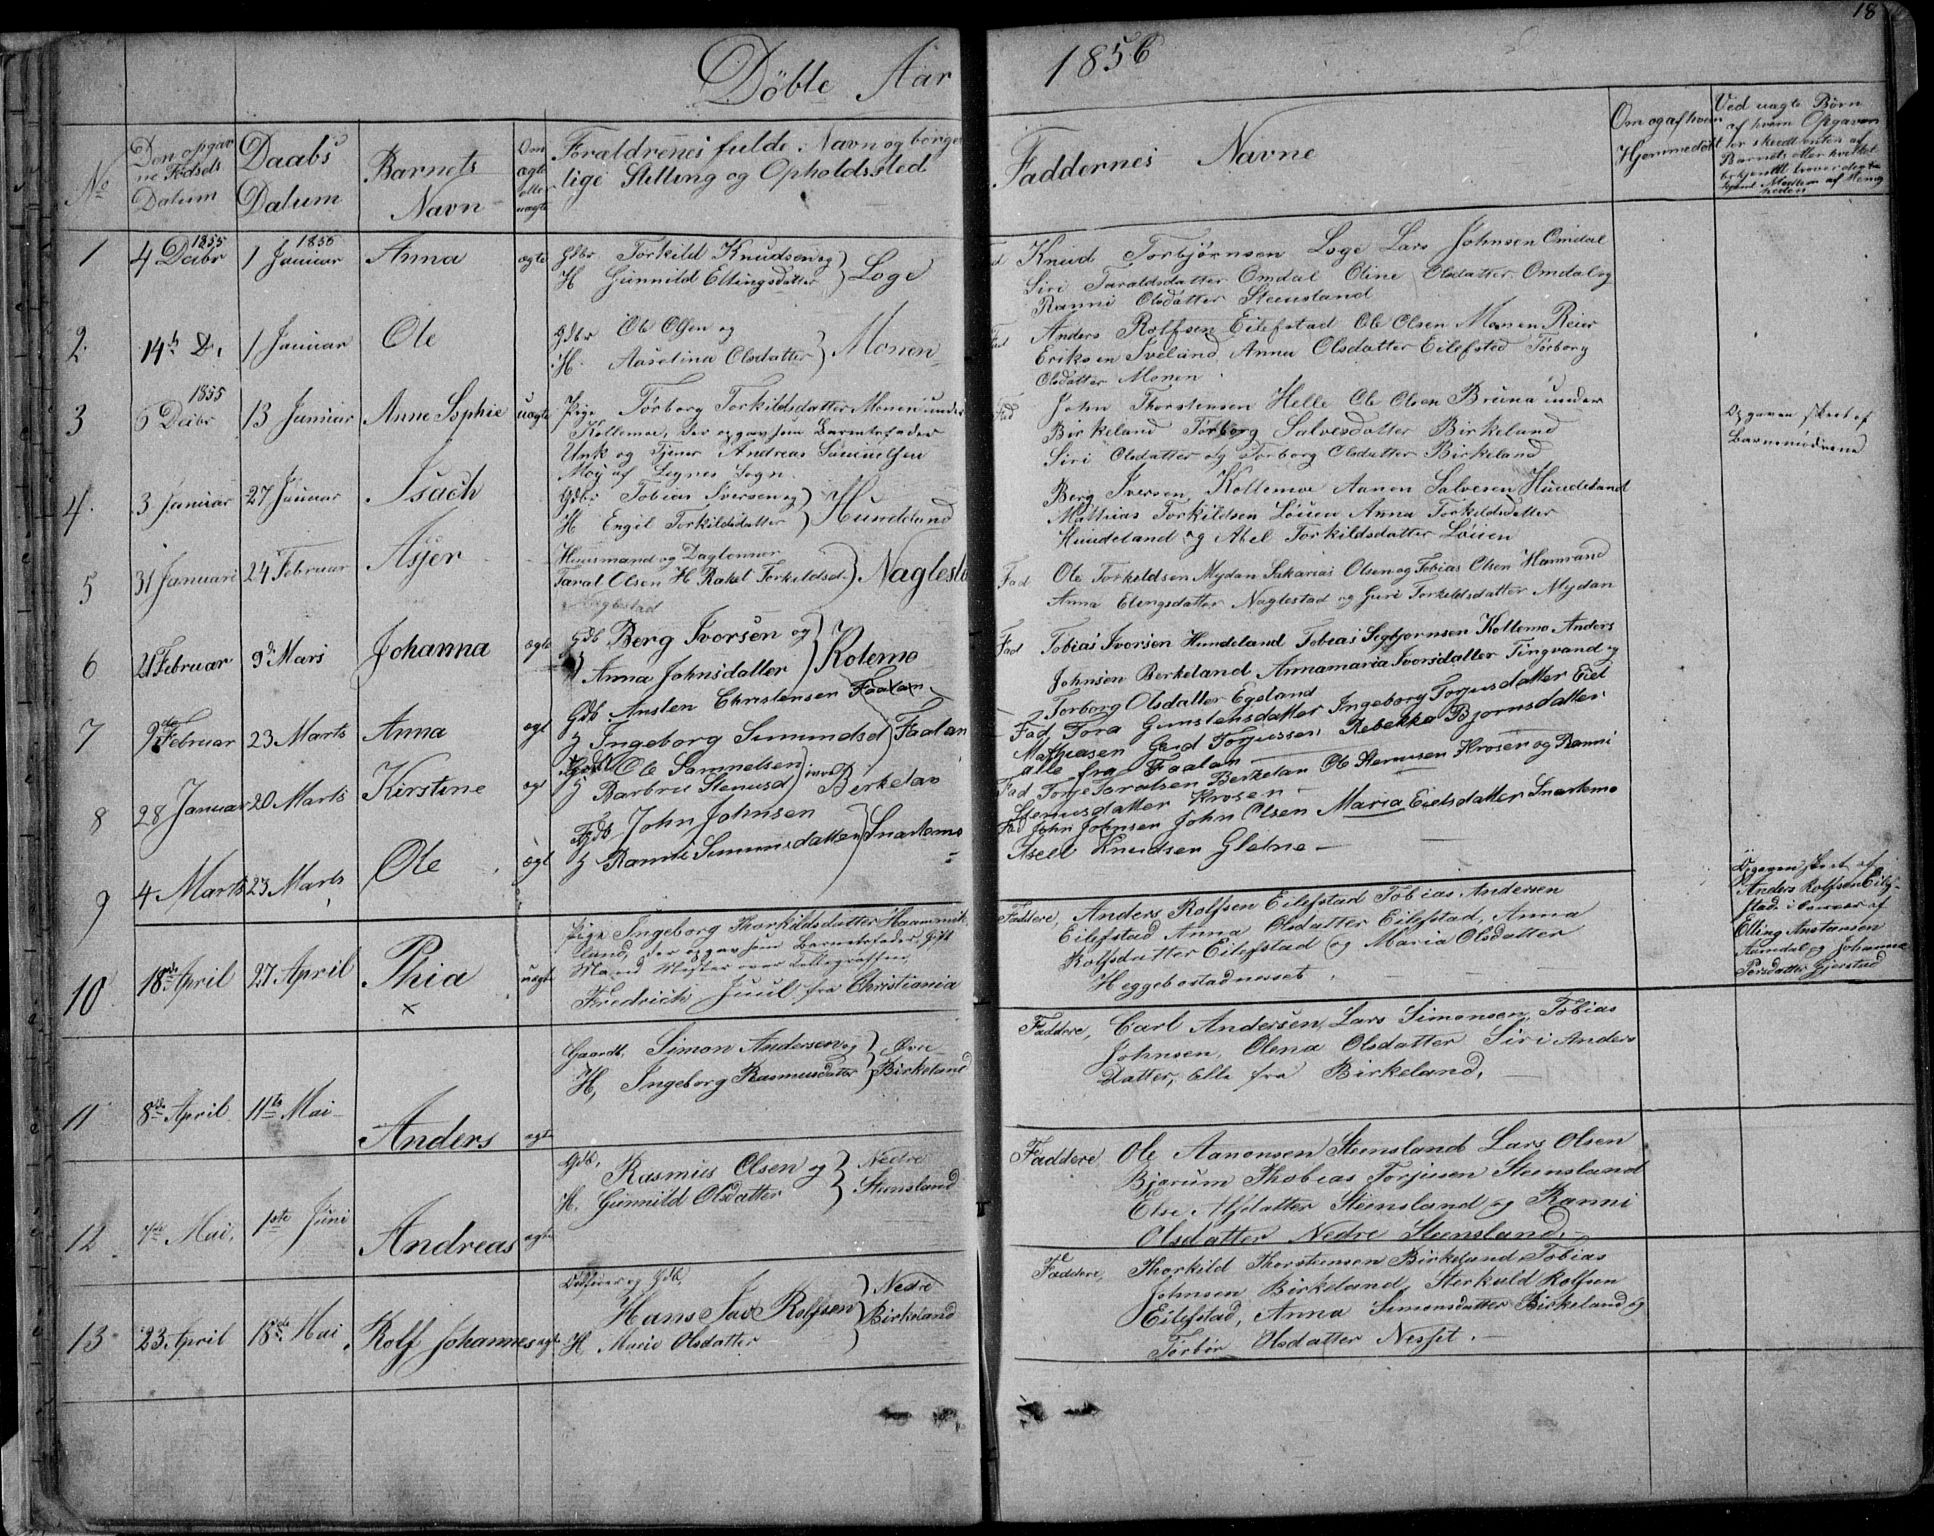 18
Döbte Aar 1856
No
Den opgiv
ne Fødsels
Datum
Daabs
Datum
Barnets
Navn
Om
ægte
eller
uægte
Forældrenes fulde Navn og borger
lige Stilling og Opholdssted
Faddernes Navne
Om og af hvem
Hjemmedøbt
Ved uægte Børn
af hvem Opgaven
er skeedt enten af
Barnets eller hvilket
1 4 Decbr 1855 1 Januar 1856 Anna ægte
Gdbr Torkild Knudsen og
H Gunnild Ellingsdatter } Loge
Fad Knud Torbjørnsen Loge Lars Johnsen Omdal
Siri Taraldsdatter Omdal Oline Olsdatter Omdal og
Ranni Olsdatter Steensland
2. 14de D. 1 Januar Ole
Gdbr Ole Olsen og
H. Aaselina Olsdatter } Monen
Fad Anders Rolfsen Eilefstad Ole Olsen Monen Reier
Eriksen Sveland, Anna Olsdatter Eilefsted Torborg
Olsdatter Monen
3 6 Decbr 1855 13 Januar Anne Sophie uægte
Pige Torborg Torkildsdatter Monen under
Kollemoe, der opgav som Barnefader
Unk og Tjener Andreas Samuelsen
Moy af Lygnes Sogn.
Fad John Thorstensen Helle Ole Olsen Bruna under
Birkeland Torborg Salvesdatter Birkeland
Siri Olsdatter og Torborg Olsdatter Birkeland
Opgaven skeet af
Barnemoderene
4. 3 Januar 27 Januar Isach
Gdbr Tobias Iversen og
H Engel Torkildsdatter } Hundeland
Berg Iversen Kollemoe Aanen Salvesen Hundeland
Mathias Torkildsen Löuen Anna Torkildsdatter
Hundeland og Abel Torkildsdatter Löuen
5 31 Januari 24 Februar Asjer
Huusmand og Daglønner
Taral Olsen H. Rakel Torkeldsd. } Naglesta
Naglestad
Fad Ole Torkeldsen Mydan Sakarias Olsen og Tobias Olsen Hamrand
Anna Elingsdatter Naglestad og Guri Torkeldsdatter Mydan
6 21 Februar 9de Mars Johanna ægte
Gdb Berg Ivorsen og
Anna Johnsdatter } Kolemo
Fad Tobias Ivorsen Hundeland Tobias Segbjornsen Kollemo Anders
Johnsen Berkeland Annamaria Ivorsdatter Tingvand og
Torborg Olsdatter Egeland
7 9de Februar 23 Marts Anna ægt
Gdb Ansten Christensen Faalan
H Ingeborg Simundsd } Faalan
Fad Tora Gunstensdatter Ingeborg Torjusdatter Eiel
Mathiasen Gud Torjussen Rebekka Bjornsdatter
alle fra Faalan
8 28 Januar 20 Marts Kirstine ægt
Gdb Ole Samuelsen
H Barbru Stenusd } Birkelan
Fad Torje Taralsen Berkelan Ole Stenusen Krosen og Ranni
Stenusdatter Krosen
9 4 Marts 23 Marts Ole ægt
Gdb John Johnsen
H Ranni Simunsdatter } Snartemo
Fad John Johnsen John Olsen Maria Eielsdatter Snartemo
Aseel Knudsen Gletne
10 18de April 27 April Thia uægte
×
Pige Ingeborg Thorkildsdatter Haammer
land, der opgav som Barnefader, Gift
Mand Mester over Tellegraffen,
Fredrich Juul, fra Christiania
Faddere, Anders Rolfsen Eilefstad Tobias Andersen
Eilefstad Anna Olsdatter Eilefstad, Anna
Rolfsdatter Eilefstad og Maria Olsdatter
Heggebostadnesset.
Opgaven skeet af
Anders Rolfsen Eilef-
stad i Nærvær af
Elling Anstensen
Aamdal og Johanna
Persdatter Gjerstad
11 8de April 11te Mai Anders ægte
Gaardb. Simon Andersen og
H, Ingeborg Rasmusdatter } Øvre
Birkeland
Faddere, Carl Andersen, Lars Simonsen, Tobias
Johnsen, Olena Olsdatter Siri Anders
Datter, alle fra Birkeland.
12 7de Mai, 1ste Juni Andreas ægte
Gdb. Rasmus Olsen og
H. Gunnild Olsdatter } Nedre
Steensland
Faddere, Ole Aanonsen Steensland Lars Olsen
Bjarum Thobias Torjusen Steensland
Else Alfdatter Steensland og Ranni
Olsdatter Nedre Steensland.
13 23 April 18de Mai Rolf Johannes ægte
og Gdb.
Hans Jac Rolfsen
H Marie Olsdatter } Nedre
Birkeland
Faddere, Thorkild Thorstensen Birkeland Tobias
Johnsen Birkeland, Sterkuld Rolfsen
Eilefstad, Anna Simonsdatter Birkeland og
Torbor Olsdatter Nesset.